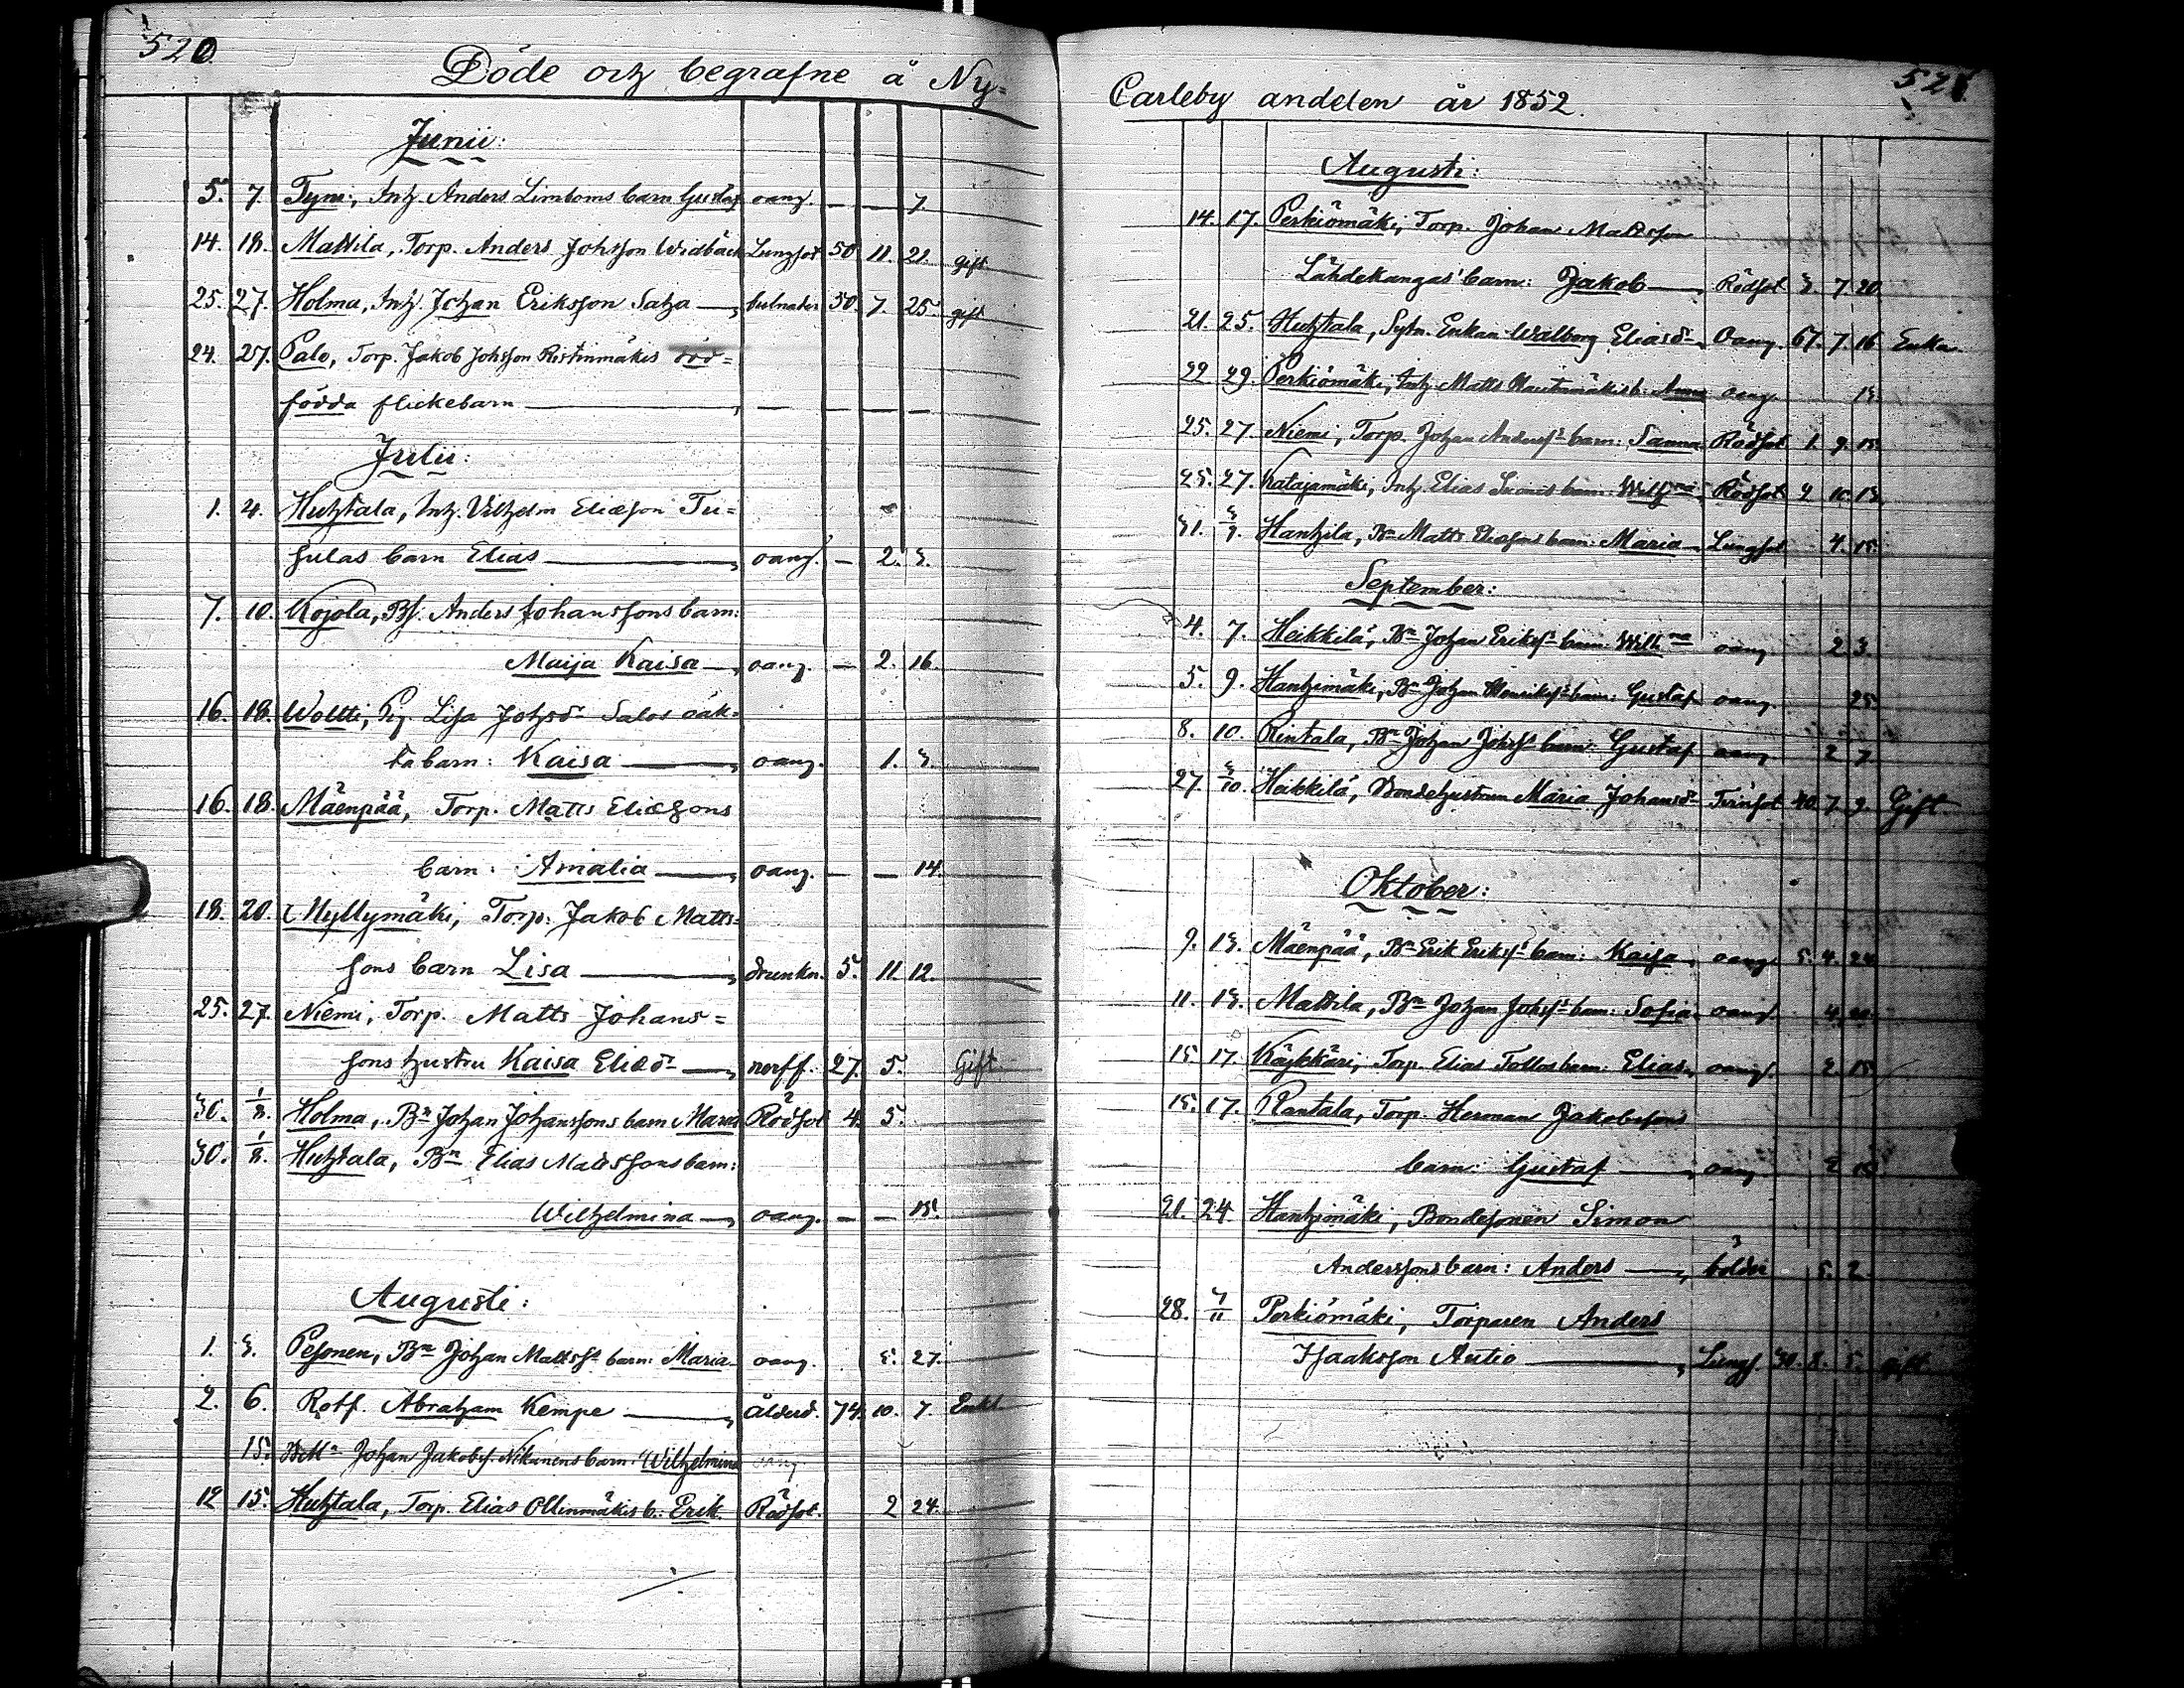 520.
Döde och begrafne å Ny-
Junii:
5. 7. Tyni, Inh. Anders Limboms barn Gustaf oang. — — 7.
14. 18. Mattila, Torp. Anders Johsson Widbäck Lungsot 50 11. 21. gift
25. 27. Holma, Inh. Johan Eriksson Salja — 50. 7. 25. gift
24. 27. Palo, Torp. Jakob Johsson Ristinmäkis död=
födda flickebarn — — — —
Julii:
1. 4. Huhtala, Inh. Vilhelm Eliæson Tu=
sulas barn Elias — oang. — 2. 3.
7. 10. Kojola, Bs. Anders Johanssons barn:
Maija Kaisa — oang. — 2. 16.
16. 18. Woltti, Pig. Lisa Johsdr Salos oäk=
ta barn: Kaisa — oang. 1. 3.
16. 18. Mäenpää, Torp. Matts Eliæsons
barn: Amalia — oang. — — 14.
18. 20. Myllymäki, Torp. Jakob Matts=
sons barn Lisa — drunkn. 5. 11. 12.
25. 27. Niemi, Torp. Matts Johans=
sons hustru Kaisa Eliædr — nerff. 27. 5. Gift.
30. 1/8. Holma, Bn Johan Johanssons barn Maria Rödsot 4. 5.
30. 1/8. Huhtala, Bn Elias Mattssons barn:
Wilhelmina — oang. — — 15.
Augusti:
1. 3. Pesonen, Bn Johan Mattss barn: Maria oang. 5. 27.
2. 6. Rotf. Abraham Kempe — Ålderd. 74. 10. 7. Enkl.
15. Johan Jakobs. Nikanens barn: Wilhelmina oang
12 15. Huhtala, Torp. Elias Ollinmäkis b: Erik. Rödsot. 2 24.
521.
Carleby andelen år 1852.
Augusti:
14. 17. Perkiömäki, Torp. Johan Mattsson
Lähdekangas' barn: Jakob — Rödsot 3. 7. 20.
21. 25. Huhtala, Sytn. Enkan Walborg Eliasdr Oang. 67. 7. 16 Enka.
22 29. Perkiömäki, Inh. Matts b. Anna oang. 13.
25. 27. Niemi, Torp. Johan Anderss barn: Sanna Rödsot 1. 9. 15.
25. 27. Katajamäki, Inh. Elias barn: Wilhna Rödsot 2 10. 13.
31. 3/9. Hanhila, Bn Matts Eliæsons barn: Maria Lungsot 4. 15.
September:
4. 7. Heikkilä, Bn Johan Erikss barn: Wilhna oang 2 3.
5. 9. Hanhimäki, Bn Johan Henrikss barn: Gustaf oang 25
8. 10. Rintala, Bn Johan Johss barn: Gustaf oang 2 7
27. 3/10. Heikkilä, Bondehustrun Maria Johansdr Tvinsot 40. 7. 9. Gift
Oktober:
9. 13. Mäenpää, Bn Erik Erikss barn: Kaisa oang. 5. 4. 24
11. 13. Mattila, Bn Johan Johss barn: Sofia oang. 4. 20.
15 17. Käykkäri, Torp. Elias Tollos barn: Elias oang. 2. 15
15. 17. Rantala, Torp. Herman Jakobssons
barn: Gustaf — oang 2 15
21. 24. Hanhimäki, Bondesonen Simon
Anderssons barn: Anders — bölder 5. 2.
28. 7/11 Perkiömäki, Torparen Anders
Isaaksson Autio — Lungs. 30. 8. 5. gift